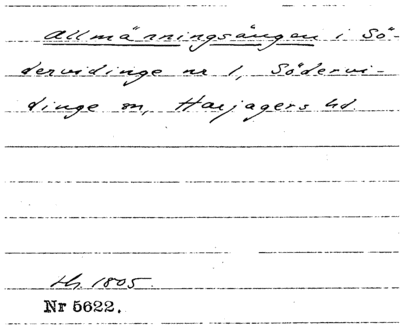 Allmänningsången i Sö-
dervidinge nr 1, Södervi-
dinge sn, Harjagers hd
th. 1805.
Nr 5622.